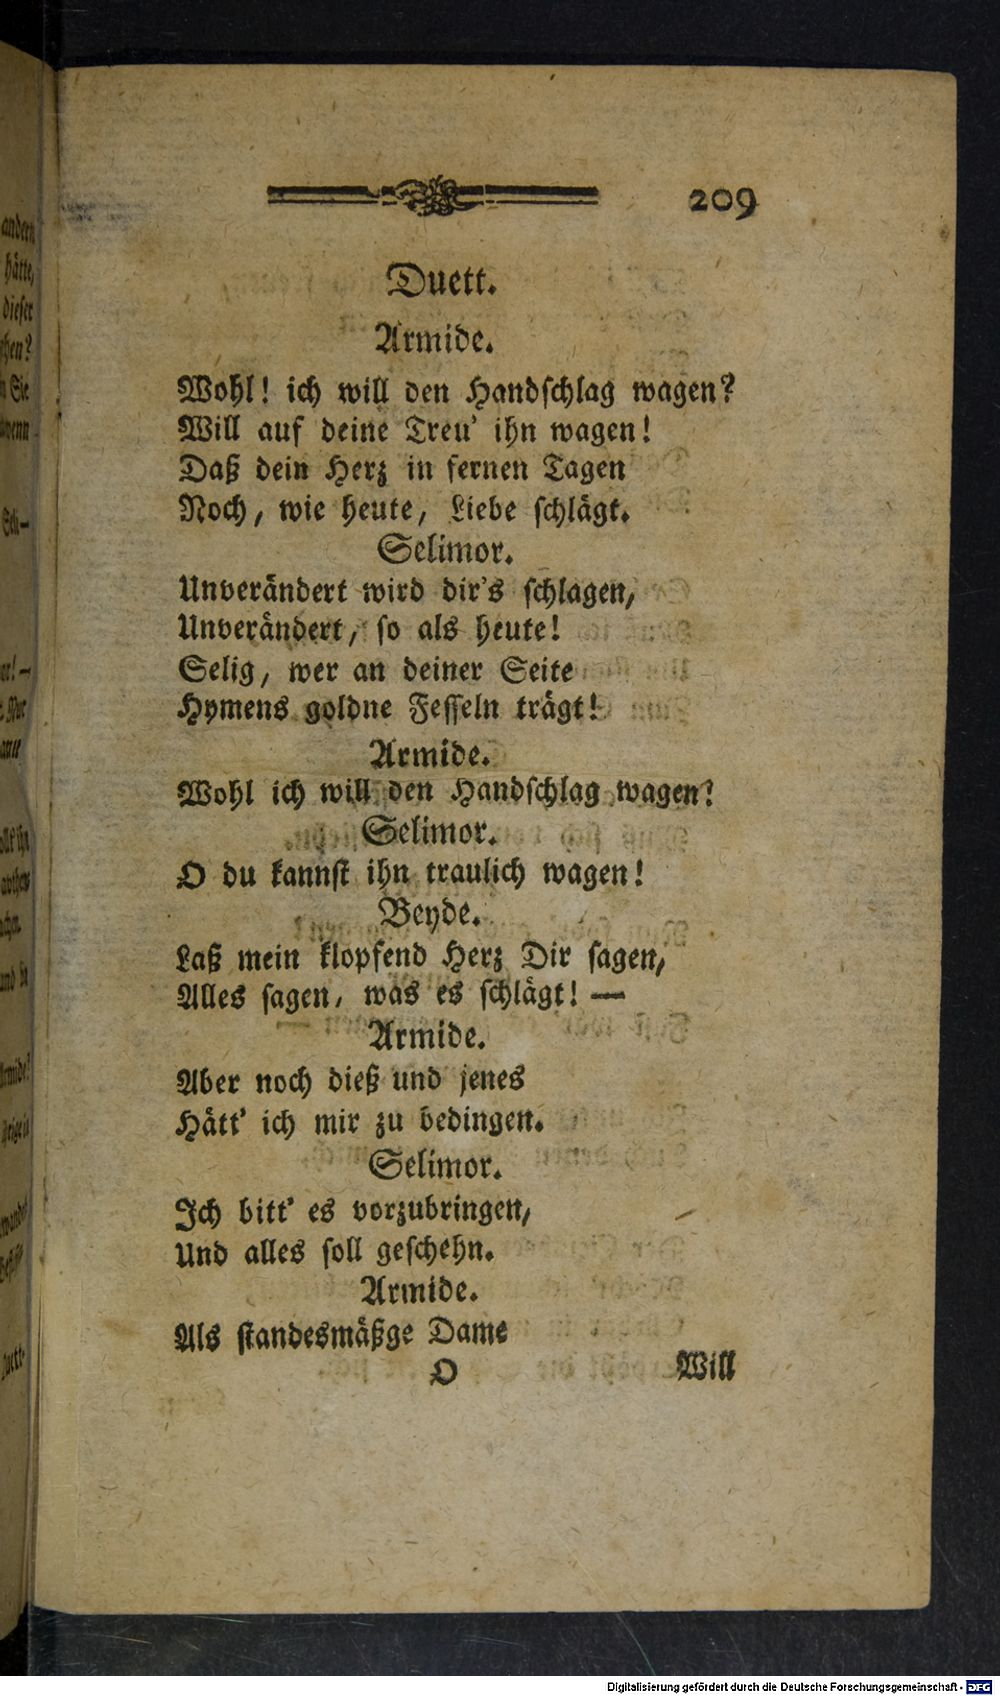 209
Duett.
Armide.
Wohl! ich will den Handschlag wagen?
Will auf deine Treu' ihn wagen!
Daß dein Herz in fernen Tagen
Noch, wie heute, Liebe schlägt.
Selimor.
Unverändert wird dir's schlagen,
Unverändert, so als heute!
Selig, wer an deiner Seite
Hymens goldne Fesseln trägt!
Armide.
Wohl ich will den Handschlag wagen?
Selimor.
O du kannst ihn traulich wagen!
Beyde.
Laß mein klopfend Herz Dir sagen,
Alles sagen, was es schlägt! —
Armide.
Aber noch dieß und jenes
Hätt' ich mir zu bedingen.
Selimor.
Ich bitt' es vorzubringen,
Und alles soll geschehn.
Armide.
Als standesmäßge Dame
O Will
andern
hätte,
dieser
Sie
wenn
Digitalisierung gefördert durch die Deutsche Forschungsgemeinschaft - DFG